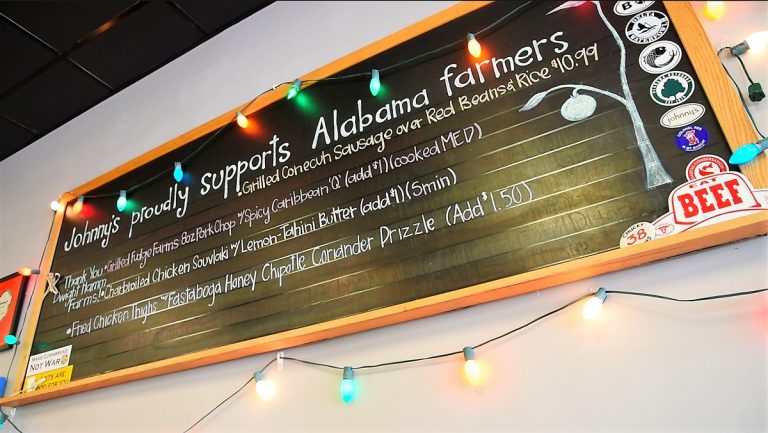 Johnny's proudly supports Alabama farmers
Grilled Conecuh Sausage over Red Beans & Rice $10.99
• Grilled Fudge Farms 8oz Pork Chop w/ Spicy Caribbean 'Q' (add $1) (cooked MED)
Thank You
Dwight Hamm
Farms!
• Charbroiled Chicken Souvlaki w/ Lemon-Tahini Butter (add $1) (5min)
• Fried Chicken Thighs w/ Eastaboga Honey Chipotle Coriander Drizzle (Add $1.50)
DELTA
johnny's
EAT
BEEF
38
MAKE CORNBREAD
NOT WAR